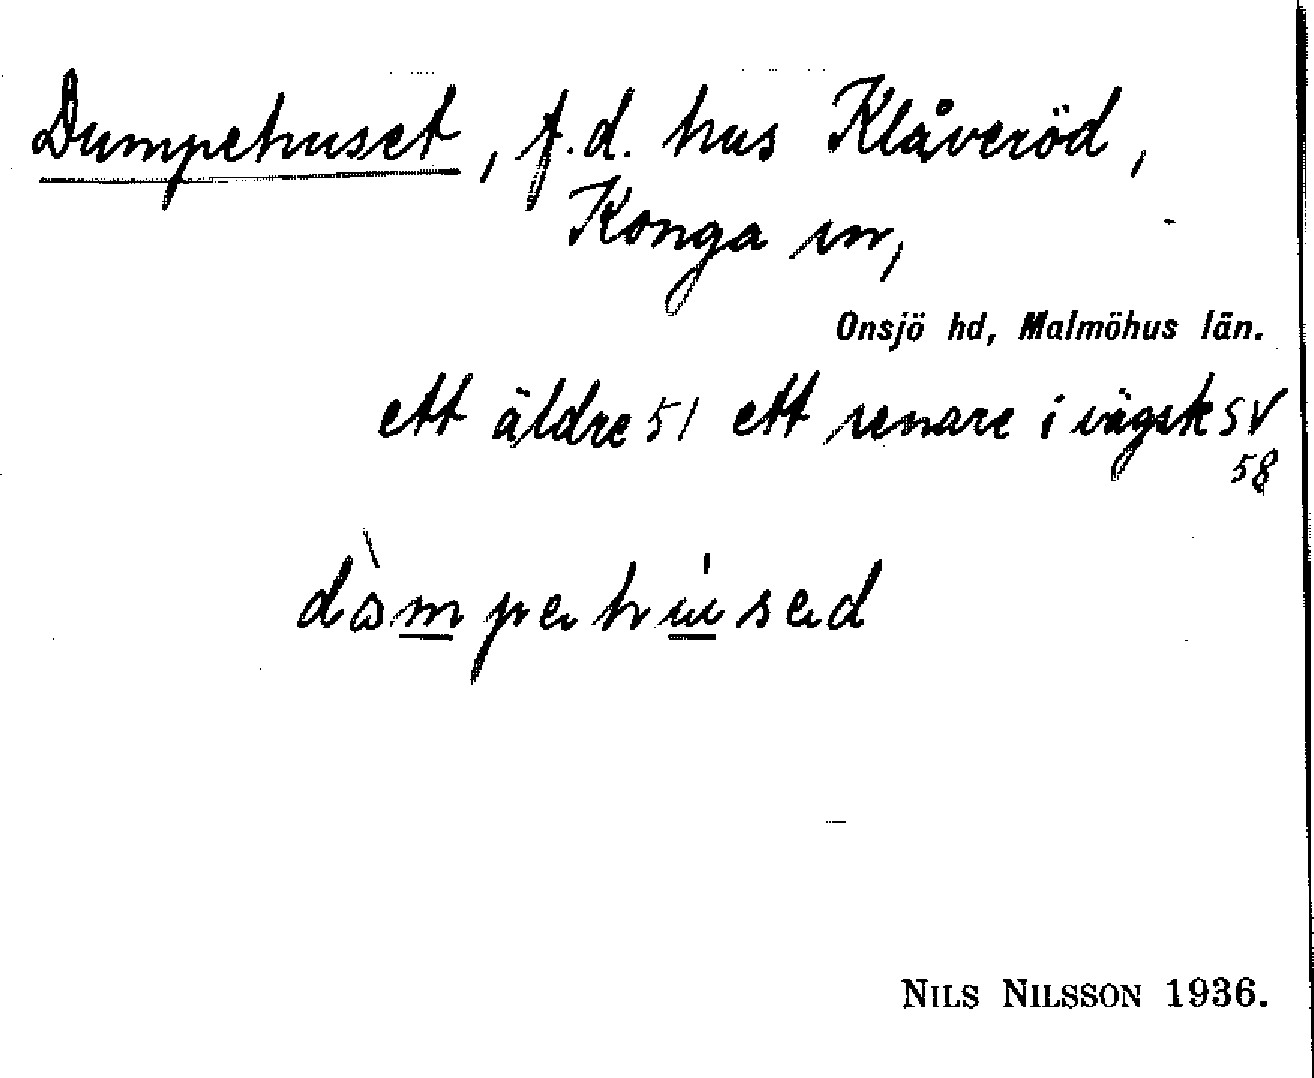 Dumpehuset, f.d. hus Klåveröd,
Konga sn,
Onsjö hd, Malmöhus län.
ett äldre 51 ett senare i vägsk SV
58
NILS NILSSON 1936.